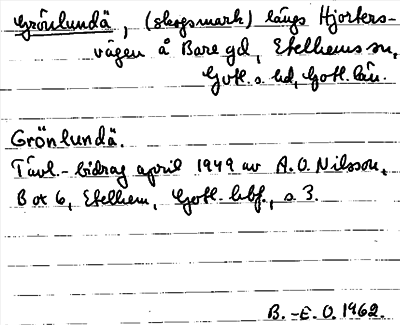 Grönlundä, (skogsmark) längs Hjorters-
vägen å Bare gd, Etelhems sn,
Gotl. s. hd, Gotl. län.
Grönlundä.
Tävl.-bidrag april 1949 av A.O. Nilsson,
Box 6, Etelhem, Gotl. hbf., s. 3.
B.-E.O. 1962.